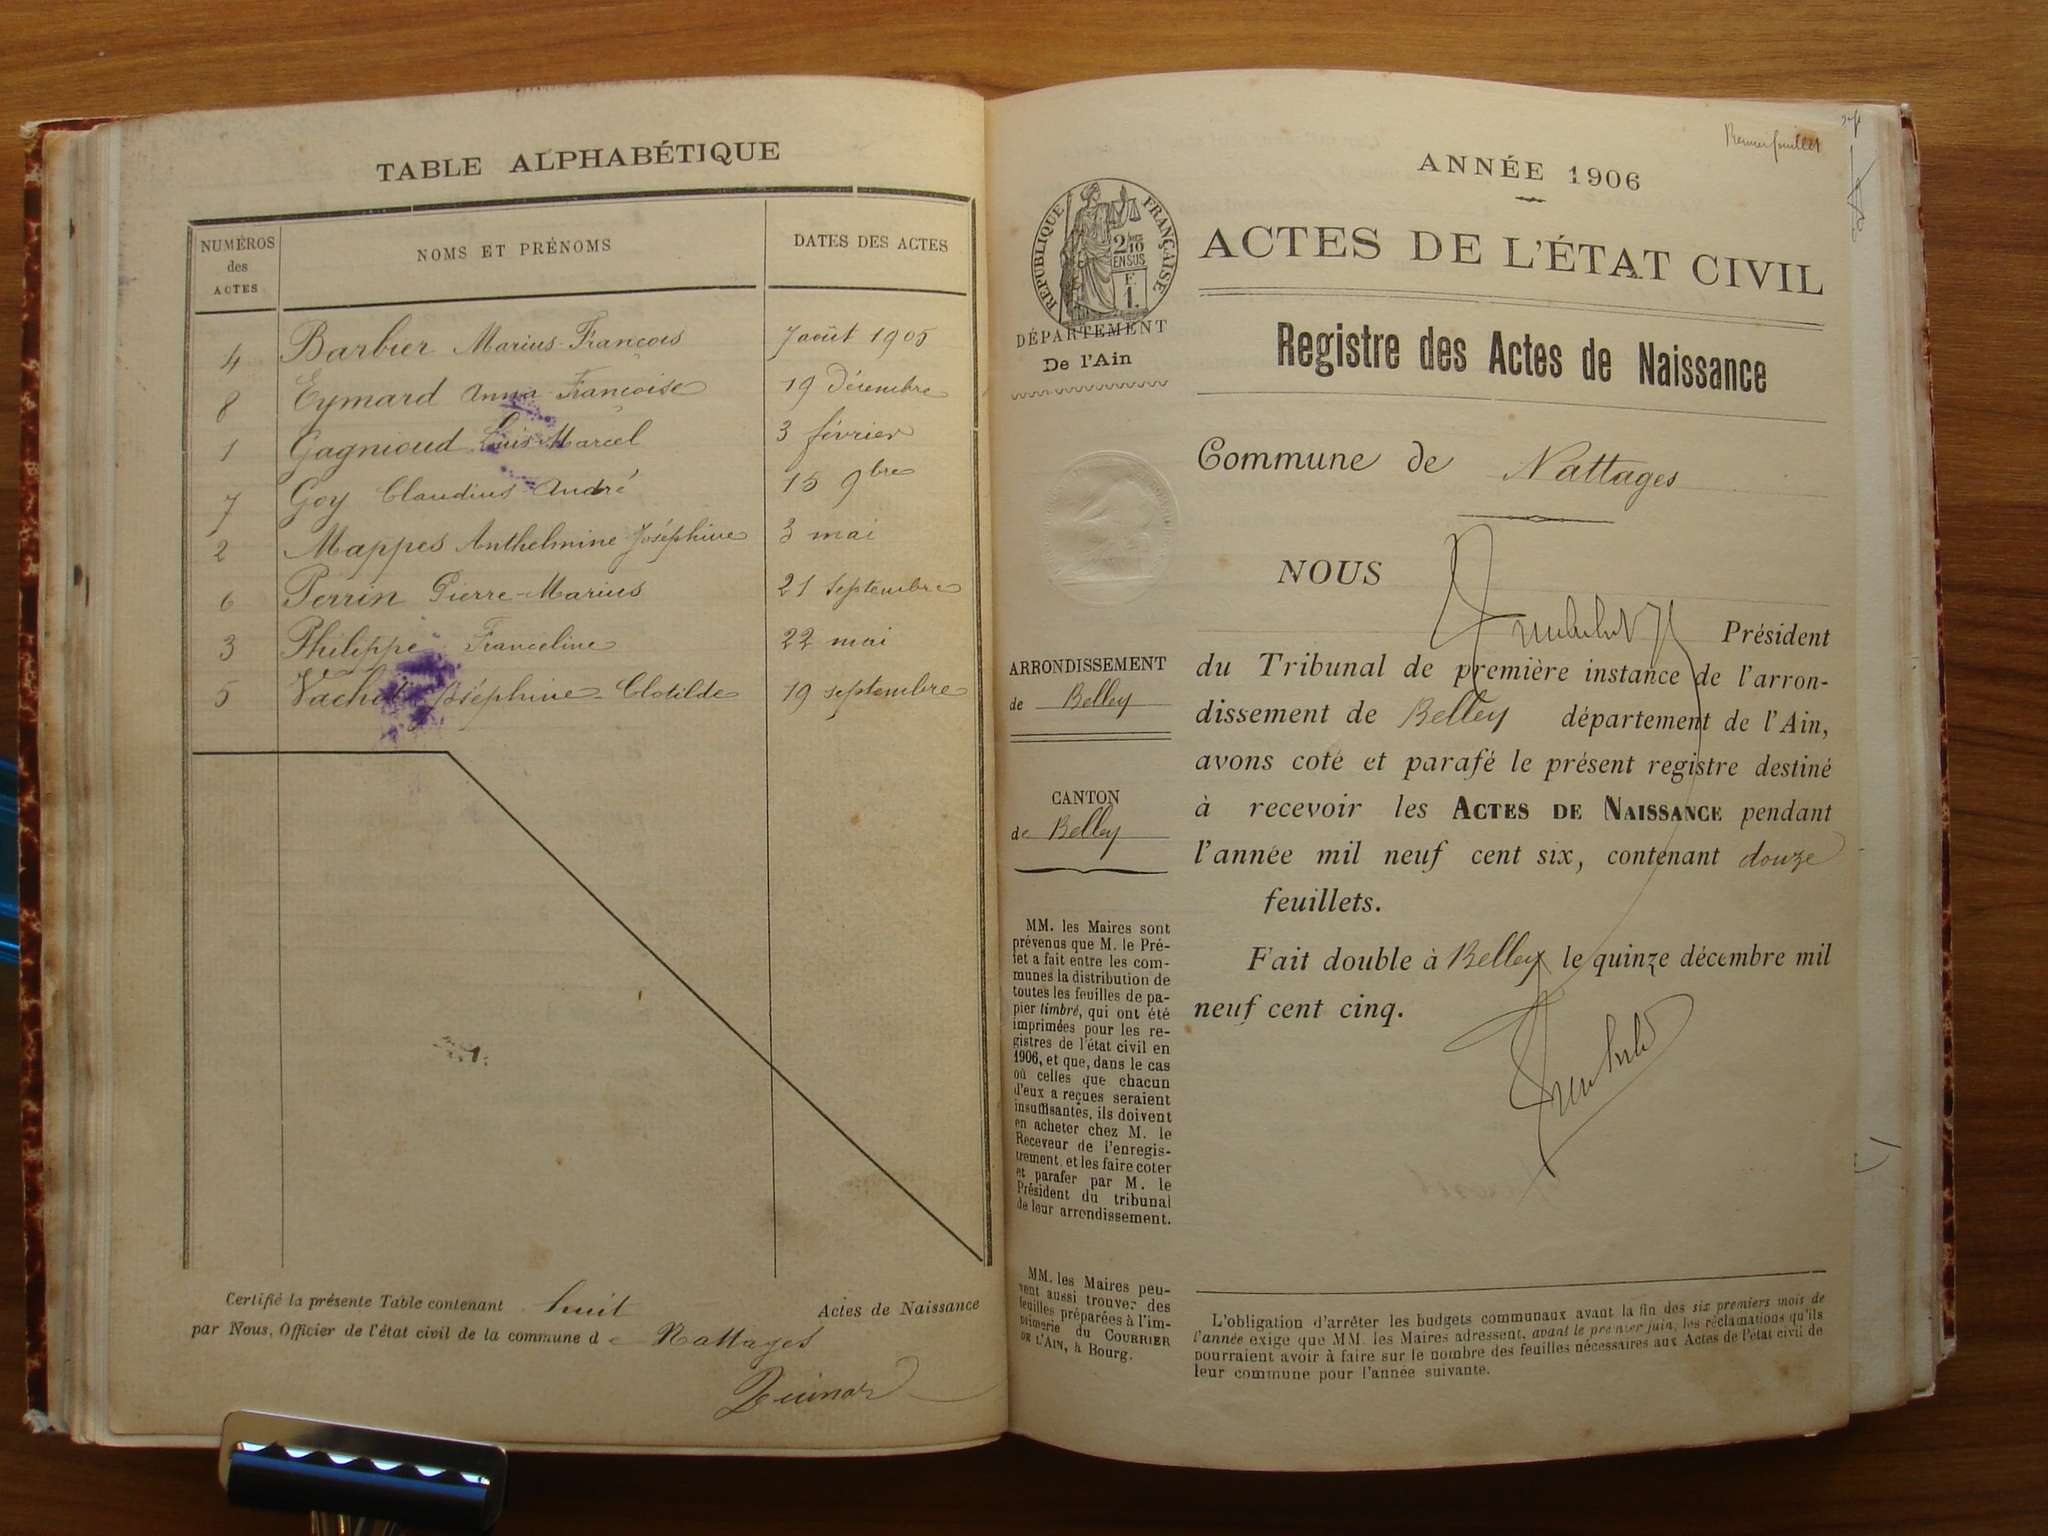 TABLE ALPHABÉTIQUE
NUMÉROS des ACTES
NOMS ET PRÉNOMS
DATES DES ACTES
4 Barbier Marius-François 7 août 1905
8 Eymard Anna Françoise 19 Décembre
1 Gagnioud Louis-Marcel 3 février
7 Goy Claudius André 15 9bre
2 Mappes Anthelmine Joséphine 3 mai
6 Perrin Pierre-Marius 21 Septembre
3 Philippe Franceline 22 mai
5 Joséphine-Clotilde 19 septembre
Certifié la présente Table contenant huit Actes de Naissance
par Nous, Officier de l'état civil de la commune d e Nattages
Premier feuillet
ANNÉE 1906
ACTES DE L'ÉTAT CIVIL
RÉPUBLIQUE FRANÇAISE
2/10 EN SUS
F.
1.
DÉPARTEMENT
De l'Ain
Registre des Actes de Naissance
Commune de Nattages
NOUS
Président
du Tribunal de première instance de l'arron-
dissement de Belley département de l'Ain,
avons coté et parafé le présent registre destiné
à recevoir les ACTES DE NAISSANCE pendant
l'année mil neuf cent six, contenant douze
feuillets.
Fait double à Belley le quinze décembre mil
neuf cent cinq.
ARRONDISSEMENT
de Belley
CANTON
de Belley
MM. les Maires sont
prévenus que M. le Pré-
fet a fait entre les com-
munes la distribution de
toutes les feuilles de pa-
pier timbré, qui ont été
imprimées pour les re-
gistres de l'état civil en
1906, et que, dans le cas
où celles que chacun
d'eux a reçues seraient
insuffisantes, ils doivent
en acheter chez M. le
Receveur de l'enregis-
trement, et les faire coter
et parafer par M. le
Président du tribunal
de leur arrondissement.
MM. les Maires peu-
vent aussi trouver des
feuilles préparées à l'im-
primerie du COURRIER
DE L'AIN, à Bourg.
L'obligation d'arrêter les budgets communaux avant la fin des six premiers mois de
l'année exige que MM. les Maires adressent, avant le premier juin, les réclamations qu'ils
pourraient avoir à faire sur le nombre des feuilles nécessaires aux Actes de l'état civil de
leur commune pour l'année suivante.